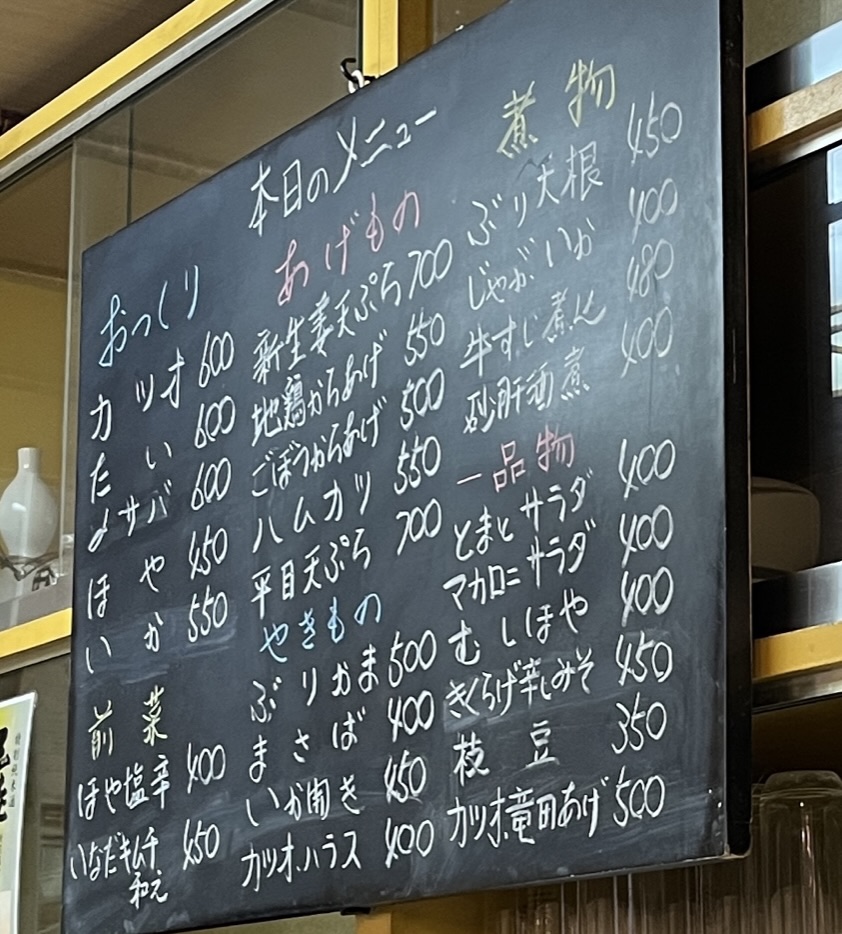 本日のメニュー
おつくり
カツオ 600
たい 600
〆サバ 600
ほや 450
いか 550
前菜
ほや塩辛 400
いなだキムチ和え 450
あげもの
新生姜天ぷら 700
地鶏からあげ 550
ごぼうからあげ 500
ハムカツ 550
平目天ぷら 700
やきもの
ぶりかま 500
まさば 400
いか開き 450
カツオハラス 400
煮物
ぶり大根 450
じゃがいか 400
牛すじ煮込 480
砂肝酒煮 400
一品物
とまとサラダ 400
マカロニサラダ 400
むしほや 400
きくらげ辛しみそ 450
枝豆 350
カツオ竜田あげ 500